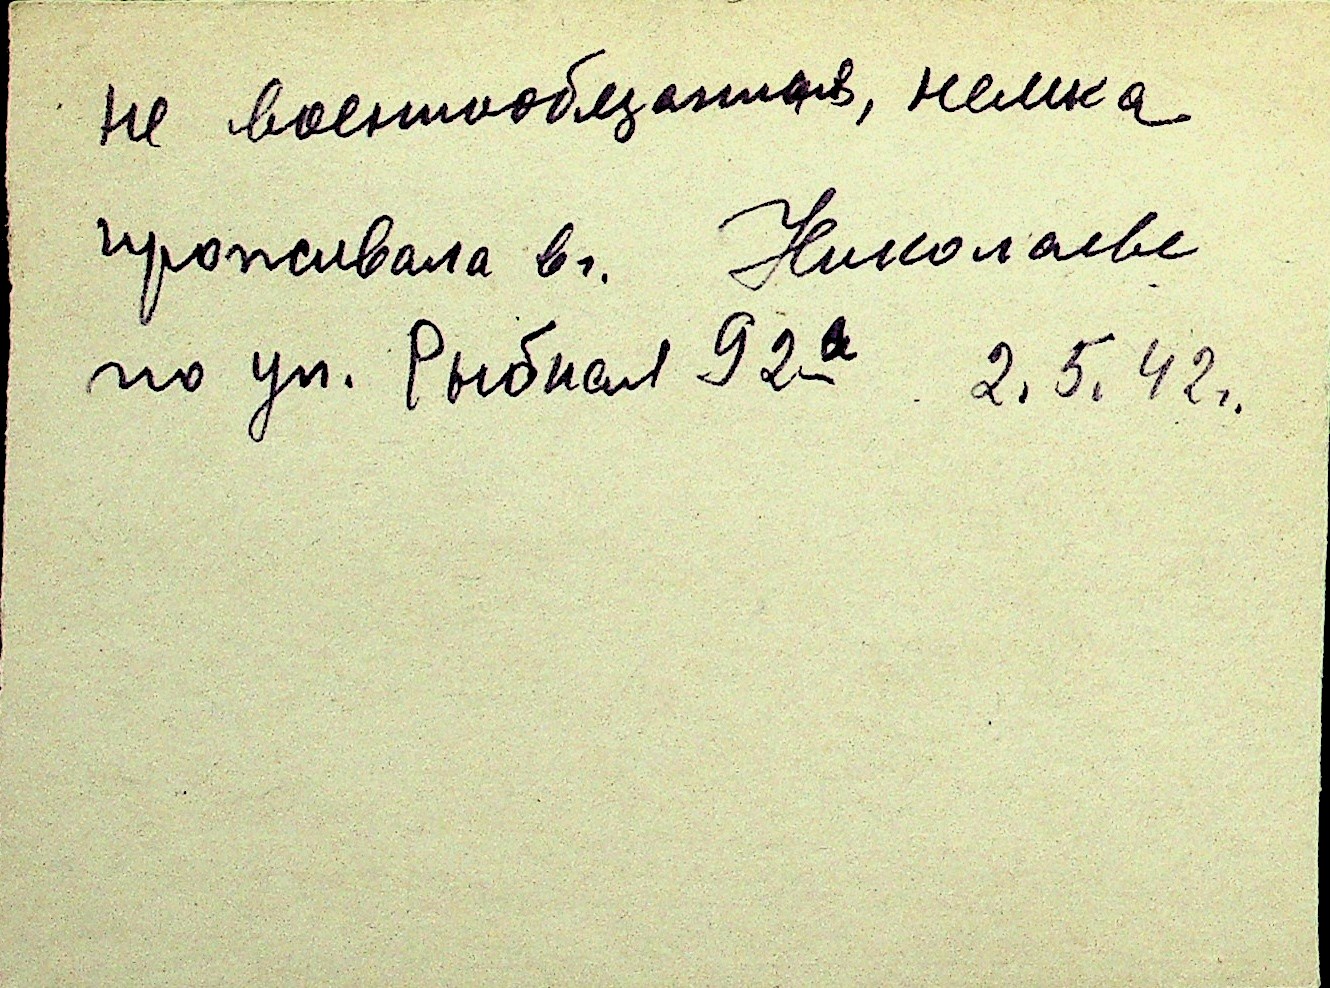 не военнообязанная, немка
проживала в г. Николаеве
по ул. Рыбная 92а 2.5.42г.